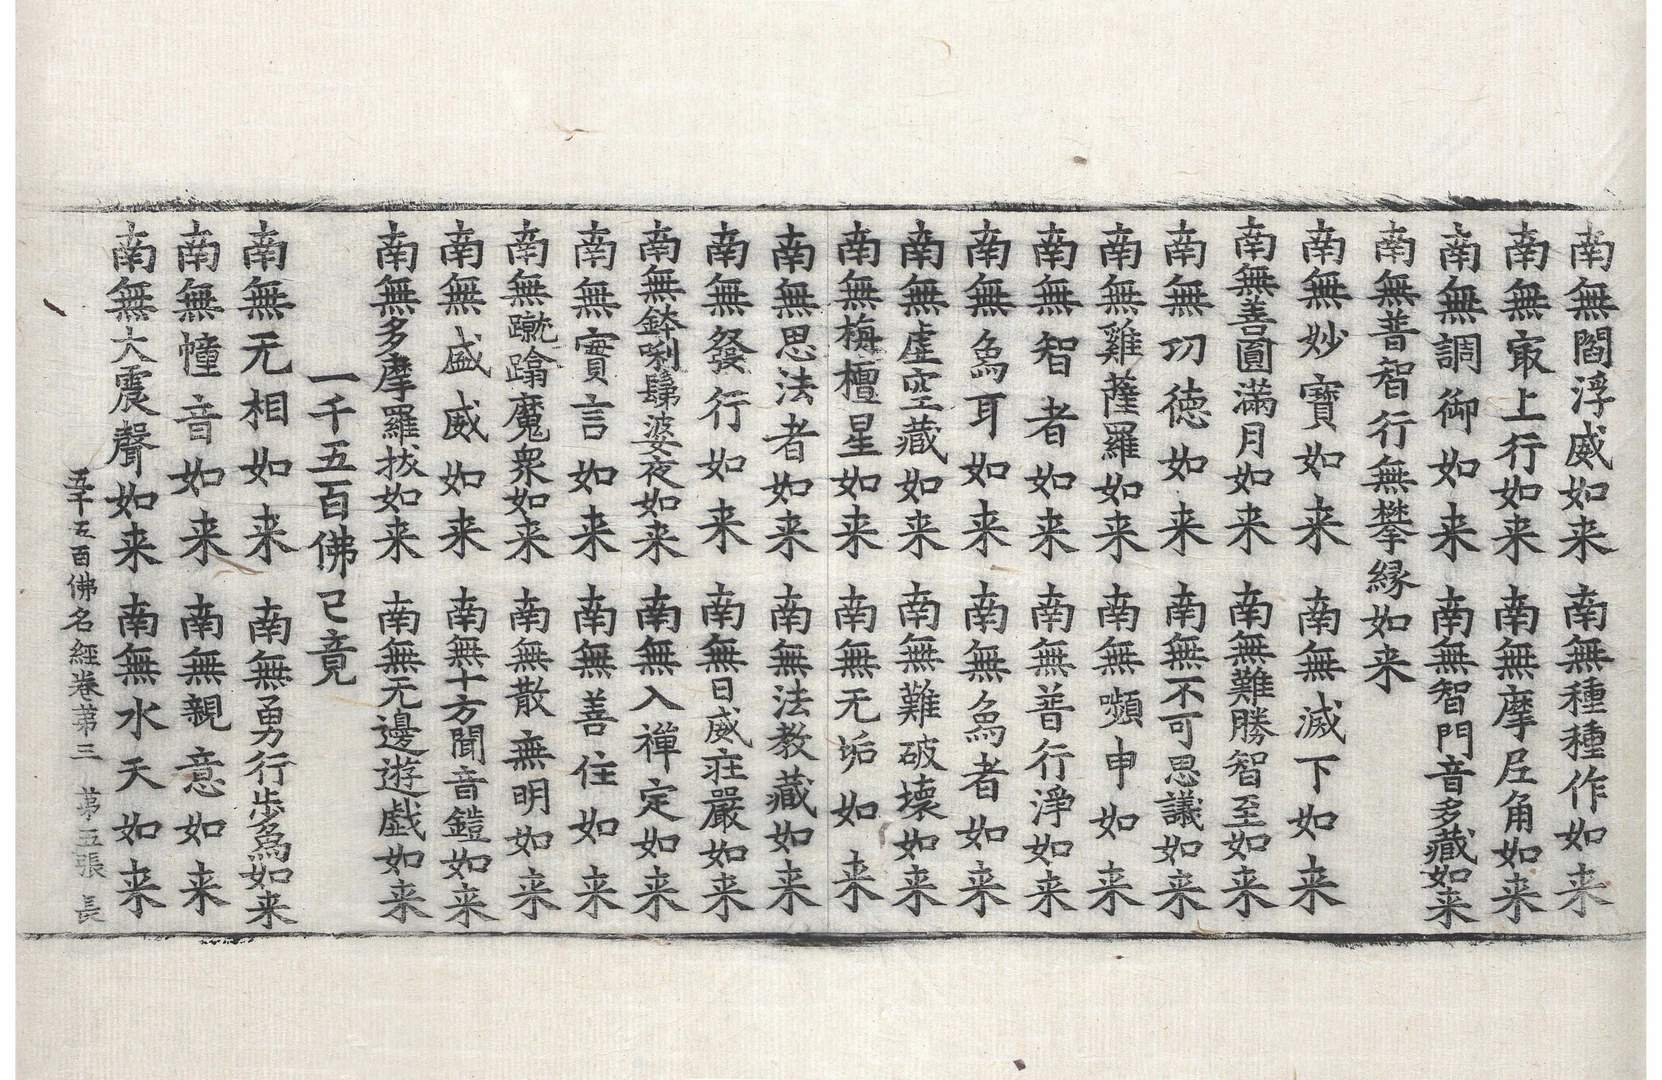 南無閻浮威如来 南無種種作如来
南無㝡上行如来 南無摩尼角如来
南無調御如来 南無智門音多藏如来
南無普智行無攀緣如来
南無妙寶如来 南無滅下如来
南無善圎滿月如来 南無難勝智至如来
南無功徳如来 南無不可思議如来
南無雞薩羅如来 南無嚬申如来
南無智者如来 南無普行淨如来
南無為耳如来 南無為者如来
南無虛空藏如来 南無難破壞如来
南無栴檀星如来 南無无垢如来
南無思法者如来 南無法教藏如来
南無發行如来 南無日威莊嚴如来
南無鉢唎髴婆夜如来 南無入禪定如来
南無實言如来 南無善住如来
南無蹴蹹魔衆如来 南無散無明如来
南無盛威如来 南無十方聞音鎧如来
南無多摩羅抜如来 南無无邊遊戲如来
一千五百佛已竟
南無无相如来 南無勇行步為如来
南無幢音如来 南無親意如来
南無大震聲如来 南無水天如来
五千五百佛名經卷苐三 苐五張 長